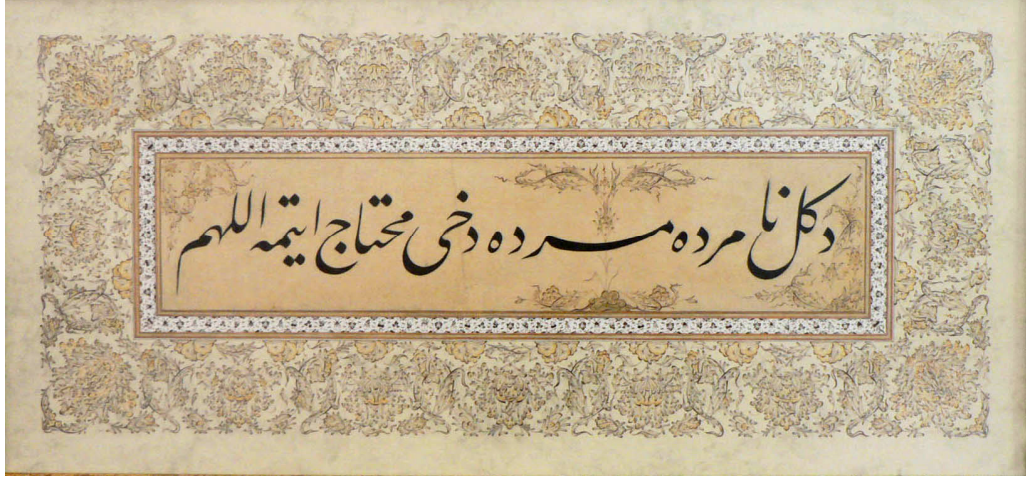 دكل نا مرده مرده دخی محتاج ایتمه اللهم